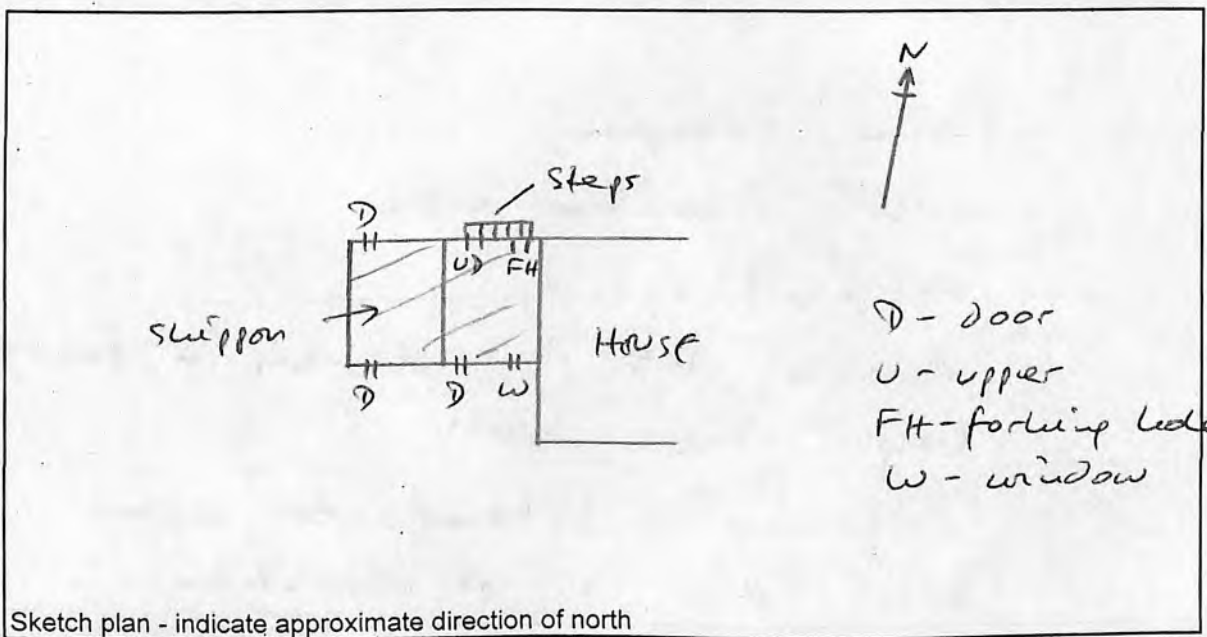 N
Steps
D
UD FH
shippon
House
D D W
D - door
U - upper
FH - forking hole
W - window
Sketch plan - indicate approximate direction of north